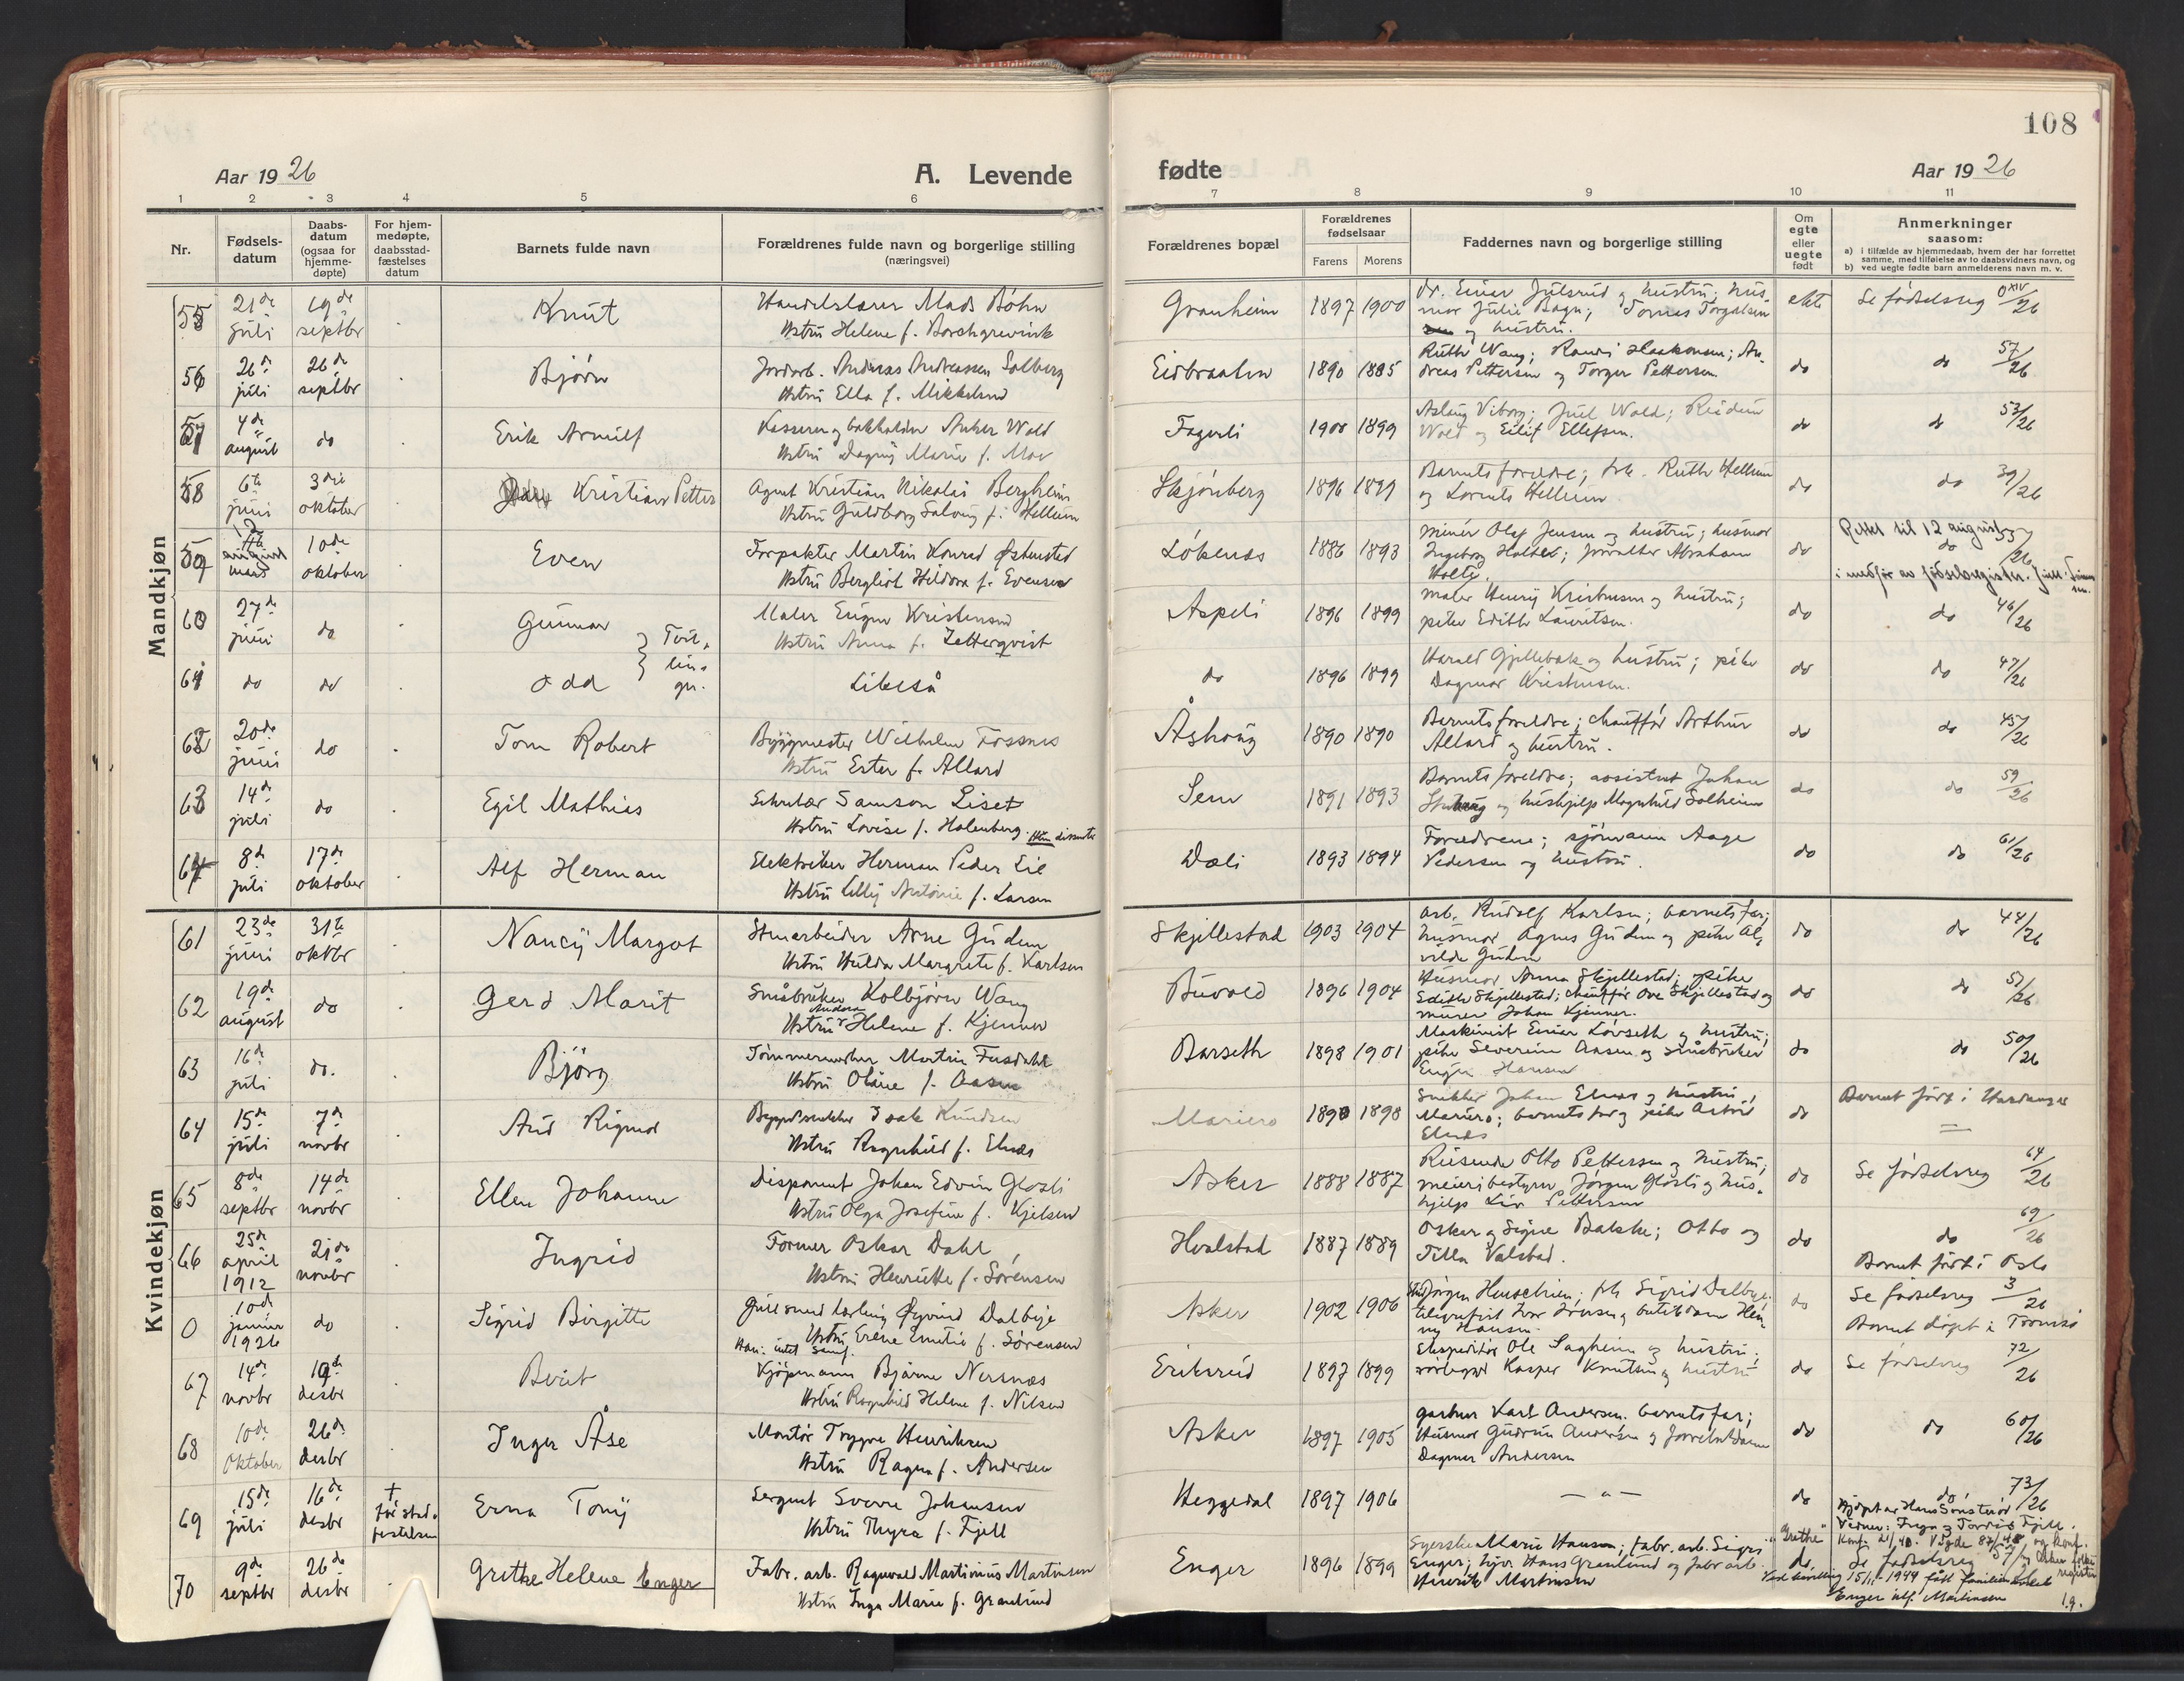 108
Aar 1926
A. Levende
fødte
Aar 1926
1 2 3 4 5 6 7 8 9 10 11
Nr.
Fødsels-
datum
Daabs-
datum
(ogsaa for
hjemme-
døpte)
For hjem-
medøpte,
daabsstad-
fæstelses
datum
Barnets fulde navn
Forældrenes fulde navn og borgerlige stilling
(næringsvei)
Forældrenes bopæl
Forældrenes
fødselsaar
Farens Morens
Faddernes navn og borgerlige stilling
Om
egte
eller
uegte
født
Anmerkninger
saasom:
a) i tilfælde av hjemmedaab, hvem der har forrettet
samme, med tilføielse av to daabsvidners navn, og
b) ved uegte fødte barn anmelderens navn m. v.
Mandkjøn
55 21de juli 19de septbr Knut
Handelslærer Mads Bøhn
Hstru Helene f. Borchgrevink
Granheim 1897 1900
dr. Einar Julsrud og hustru; hus-
mor Julie Bagn;
og hustru.
ekte Se fødselsreg
56 26de juli 26de septbr Bjørn
Jordarb. Andreas Andreassen Solberg
Hstru Ella f. Mikkelsen
Eidbraaten 1890 1885
Ruth Wang; Randi Haakonsen; An-
dreas Pettersen og Torger Pettersen.
do do 57/26
57 4de august do Erik Arnulf
Kasserer og bokholder Anker Wold
Hstru Dagny Marie f. Moe
Fagerli 1900 1899
Aslaug Viborg; Juel Wold; Reidun
Wold og Eilif Ellefsen.
do do 53/26
58 6te juni 3die oktober Kristian Petter
Agent Kristian Nikolai Bergheim
Hstru Guldborg Solveig f. Hellum
Skjønberg 1896 1899
Barnets foreldre; frk. Ruth Hellum
og Lorents Hellum.
do do 39/26
59 12 august mars 10de oktober Even
Forpakter Martin Konrad Østensted
Hstru Bergliot Hildora f. Evensen
Løkenes 1886 1893
minør Olaf Jensen og hustru; husmor
Ingeborg Holte; forvalter Abraham
Holte.
do Rettet til 12 august
do 55/26
i medfør av fødselsregister.
60 27de juni do Gunnar
Maler Eugen Kristensen
Hstru Anna f. Zetterqvist
Aspeli 1896 1899
maler Henry Kristensen og hustru;
pike Edith Lauritsen.
do do 46/26
Tvil-
lin-
ger.
61 do do Odd
Likeså
do 1896 1899
Harald Gjellebæk og hustru; pike
Dagmar Kristensen.
do do 47/26
62 20de juni do Tom Robert
Byggmester Wilhelm Fossnes
Hstru Ester f. Allard
Åshaug 1890 1890
Barnets foreldre; chauffør Arthur
Allard og hustru.
do do 45/26
63 14de juli do Egil Mathias
Samson Liset
Hstru Lovise f. Holenberg. Hun dissenter
Sem 1891 1893
Barnets foreldre; assistent Johan
og hushjelp Magnhild Solheim
do do 59/26
64 8de juli 17de oktober Alf Herman
Elektriker Herman Peder Lie
Hstru Lilly Antonie f. Larsen
Dæli 1893 1894
Foreldrene; sjømann Aage
Pedersen og hustru.
do do 61/26
Kvindekjøn
61 23de juni 31te oktbr Nancy Margot
Stenarbeider Arne Gudem
Hstru Hulda Margrete f. Karlsen
Skjellestad 1903 1904
arb. Rudolf Karlsen; barnets far;
husmor Agnes Gudem og pike Al-
vilde Gudem
do do 44/26
62 19de august do Gerd Marit
Småbruker Kolbjørn Wang
Hstru Andora Helene f. Kjenner
Buvold 1896 1904
Husmor Anna Skjellestad; pike
Edith Skjellestad; chauffør Ove Skjellestad og
murer Johan Kjenner.
do do 51/26
63 16de juli do. Bjørg
Tømmermester Martin Fusdahl
Hstru Oline f. Aasen
Barseth 1898 1901
Maskinist Einar Løvseth og hustru;
pike Severine Aasen og småbruker
Eugen Hansen
do do 50/26
64 15de juli 7de novbr Aud Rigmor
Isak Knudsen
Hstru Ragnhild f. Elnæs
Mariero 1890 1898
Snikker Johan Elnæs og hustru,
Mariero; barnets far og pike Astrid
Elnæs
do Barnet født i Hardanger
65 8de septbr 14de novbr Ellen Johanne
Disponent Johan Edvin Glosli
Hstru Olga Josefine f. Kjelsen
Asker 1888 1887
Reisende Otto Pettersen og hustru;
meieribestyrer Jørgen Glosli og hus-
hjelp Liv Pettersen
do Se fødselsreg 64/26
66 25de april 1912 21de novbr Ingrid
Former Oskar Dahl
Hstru Henriette f. Sørensen
Hvalstad 1887 1889
Oskar og Signe Bakke; Otto og
Tilla Valstad.
do do 69/26
Barnet født i Oslo
0 10de januar 1926 do Sigrid Birgitte
Gullsmed lærling Øyvind Dalbye
Hstru Erene Emelie f. Sørensen
Han: intet samf.
Asker 1902 1906
Jørgen Henschien; frk Sigrid Dalbye;
telegrafist Ivar Jensen og butikdame Hen-
ny Hansen.
do Se fødselsreg 3/26
Barnet døpt i Tromsø
67 14de novbr 19de desbr Berit
Kjøpmann Bjarne Nersnæs
Hstru Ragnhild Helene f. Nilsen
Eriksrud 1897 1899
Ekspeditør Ole Sagheim og hustru;
rørlegger Kasper Knutsen og hustru
do Se fødselsreg 72/26
68 10de oktober 26de desbr Inger Åse
Montør Trygve Henriksen
Hstru Ragna f. Andersen
Asker 1897 1905
gartner Karl Andersen. barnets far;
Husmor Gudrun Andersen og forretn.dame
Dagmar Andersen
do do 60/26
69 15de juli 16de desbr † før stad-
festelsen
Erna Tony
Sergent Sverre Johansen
Hstru Thyra f. Fjell
Heggedal 1897 1906
— " —
do do 73/26
Hjdpt av Hans Sønsterør
Vidner: Inga og Tordis Fjell.
70 9de septbr 26de desbr Grethe Helene Enger
Fabr. arb. Ragnvald Martinius Martinsen
Hstru Inga Marie f. Granlund
Enger 1896 1899
Syerske Marie Hansen; fabr. arb. Sigrid
Enger; Hans Granlund og fabr arb.
Henrik Martinsen
"Grethe"
do. Se fødselsreg 57/26
Ved bevilling 15/11-1944 fått familienavnet
Enger istf. Martinsen